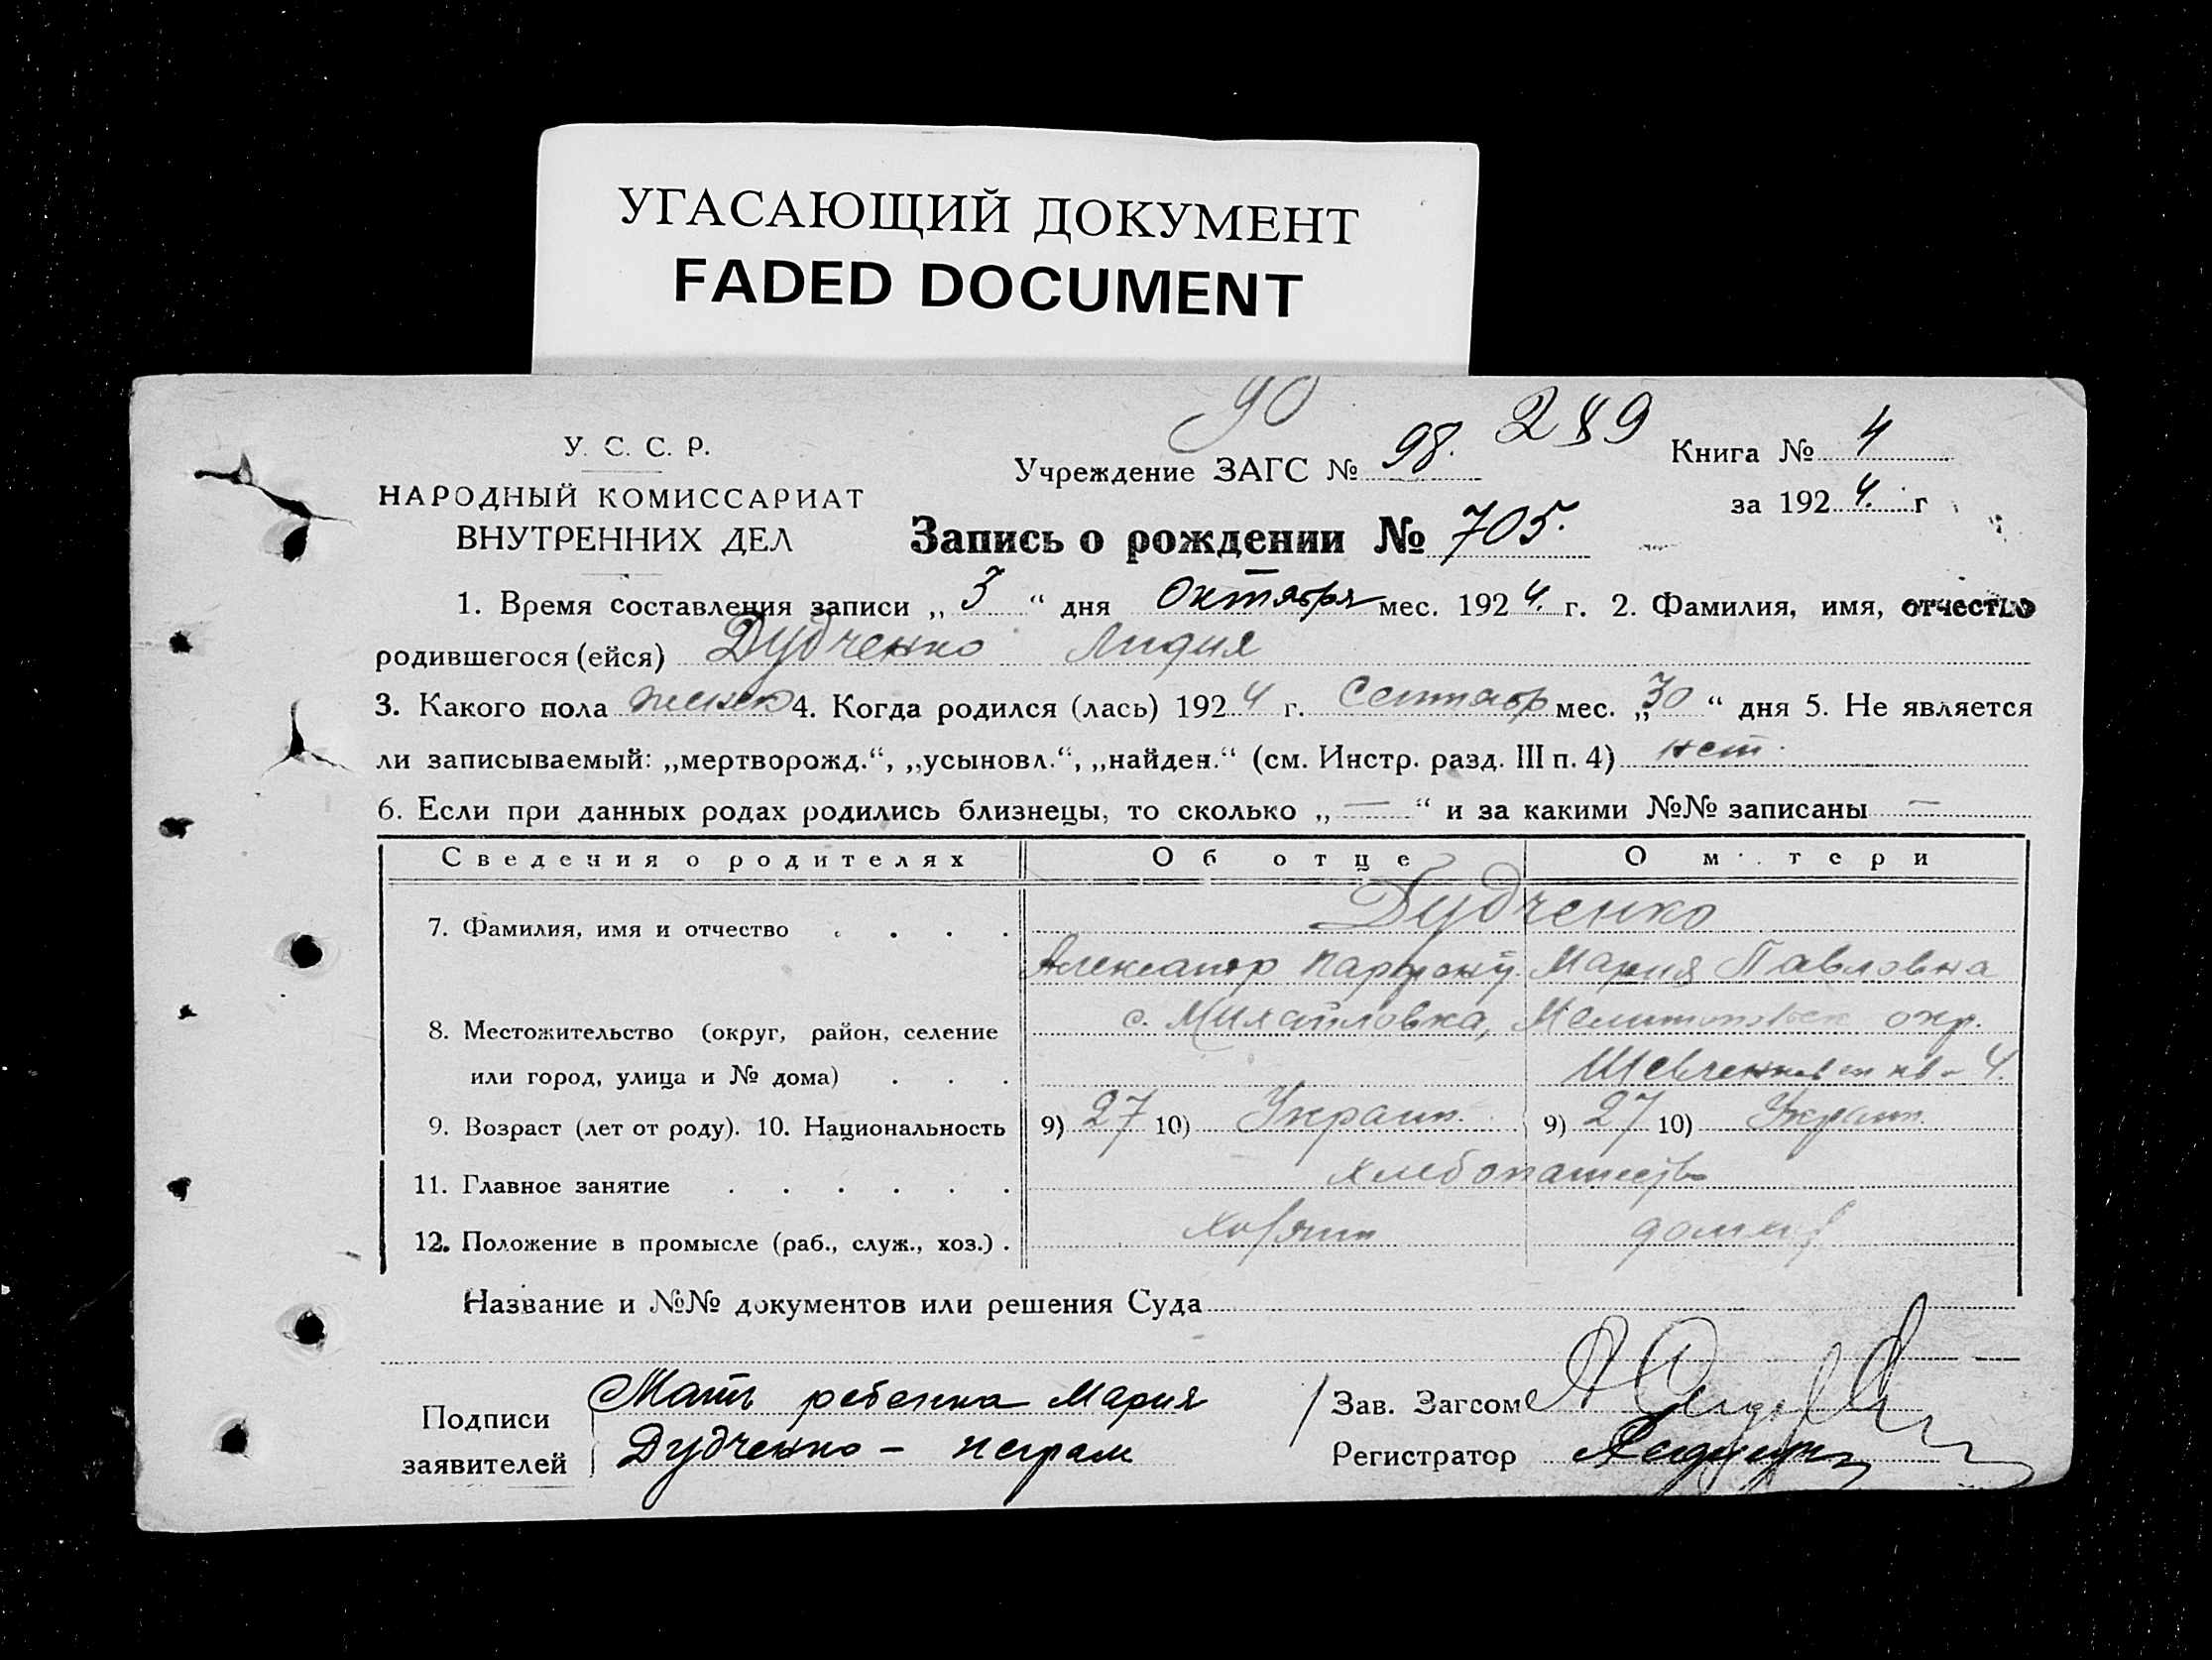 УГАСАЮЩИЙ ДОКУМЕНТ
FADED DOCUMENT
90
289
У. С. С. Р.
НАРОДНЫЙ КОМИССАРИАТ
ВНУТРЕННИХ ДЕЛ
Учреждение ЗАГС № 98.
Книга № 4
за 1924. г
Запись о рождении № 705.
1. Время составления записи „ 3 “ дня Октября мес. 1924. г. 2. Фамилия, имя, отчество
родившегося (ейся) Дудченко Лидия
3. Какого пола женск 4. Когда родился (лась) 1924 г. Сентябр мес. „ 30 “ дня 5. Не является
ли записываемый: „мертворожд.“, „усыновл.“, „найден.“ (см. Инстр. разд. III п. 4) нет.
6. Если при данных родах родились близнецы, то сколько „ — “ и за какими №№ записаны —
Сведения о родителях Об отце О м т е р и
7. Фамилия, имя и отчество Дудченко
Александр Мария Павловна
8. Местожительство (округ, район, селение с. Михайловка, окр.
или город, улица и № дома) 4.
9. Возраст (лет от роду). 10. Национальность 9) 27 10) Украин. 9) 27 10) Украин.
11. Главное занятие хлебопашество
12. Положение в промысле (раб., служ., хоз.). хозяин
Название и №№ документов или решения Суда
Подписи Мать ребенка Мария
заявителей Дудченко – неграм
Зав. Загсом
Регистратор